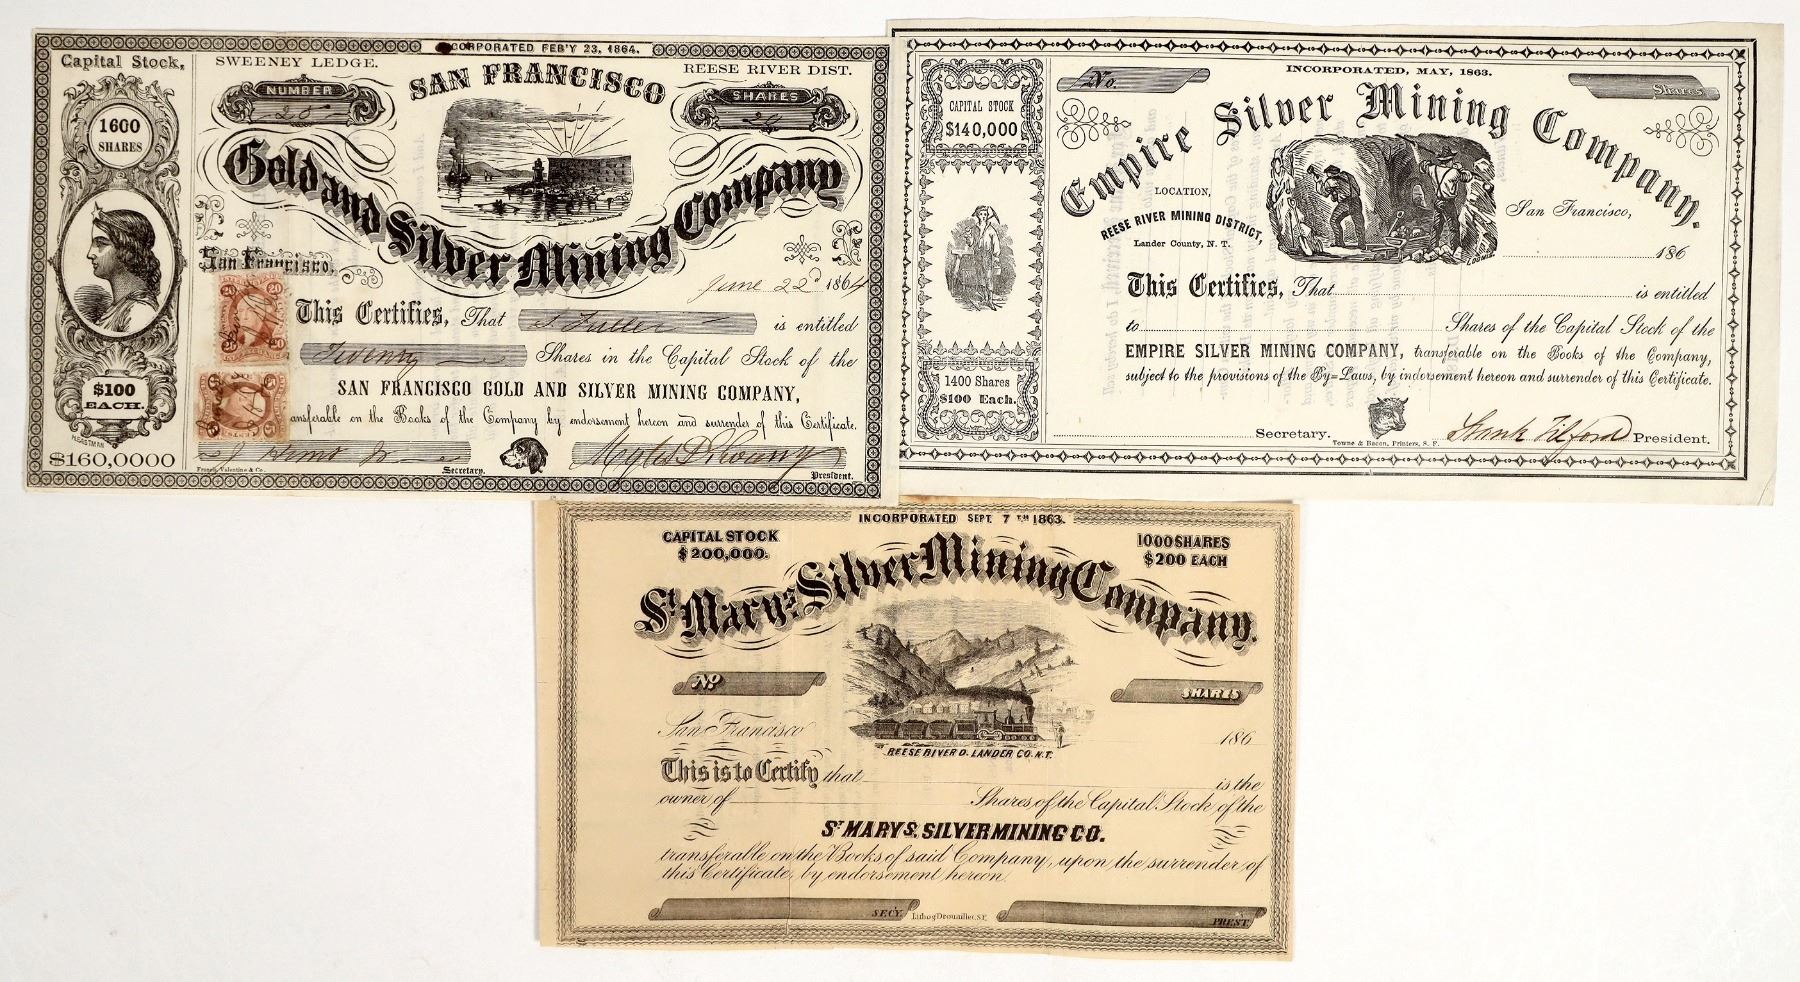 INCORPORATED FEB'Y 23, 1864.
Capital Stock,
SWEENEY LEDGE.
REESE RIVER DIST.
SAN FRANCISCO
NUMBER
SHARES
1600
SHARES
Gold and Silver Mining Company
San Francisco,
June 22d 1864
20 20
This Certifies, That S. Fuller is entitled
Twenty Shares in the Capital Stock of the
SAN FRANCISCO GOLD AND SILVER MINING COMPANY,
$100
EACH.
transferable on the Books of the Company by endorsement hereon and surrender of this Certificate.
N.EASTMAN
$160,0000
Francis, Valentine & Co.
Secretary.
President.
INCORPORATED, MAY, 1863.
No.
Shares
CAPITAL STOCK
$140,000
Empire Silver Mining Company.
LOCATION,
REESE RIVER MINING DISTRICT,
Lander County, N. T.
San Francisco,
186
This Certifies, That is entitled
to Shares of the Capital Stock of the
EMPIRE SILVER MINING COMPANY, transferable on the Books of the Company,
subject to the provisions of the By=Laws, by indorsement hereon and surrender of this Certificate.
1400 Shares
$100 Each.
Secretary.
Frank Tilford President.
Towne & Bacon, Printers, S. F.
INCORPORATED SEPT. 7TH 1863.
CAPITAL STOCK
$200,000.
1000 SHARES
$200 EACH
St Mary's Silver Mining Company.
No
SHARES
San Francisco 186
REESE RIVER D. LANDER CO. N.T.
This is to Certify that is the
owner of Shares of the Capital Stock of the
ST MARY'S, SILVER MINING CO.
transferable on the Books of said Company, upon the surrender of
this Certificate, by endorsement hereon.
SECY.
Lithog Drouaillet, S.F.
PREST.